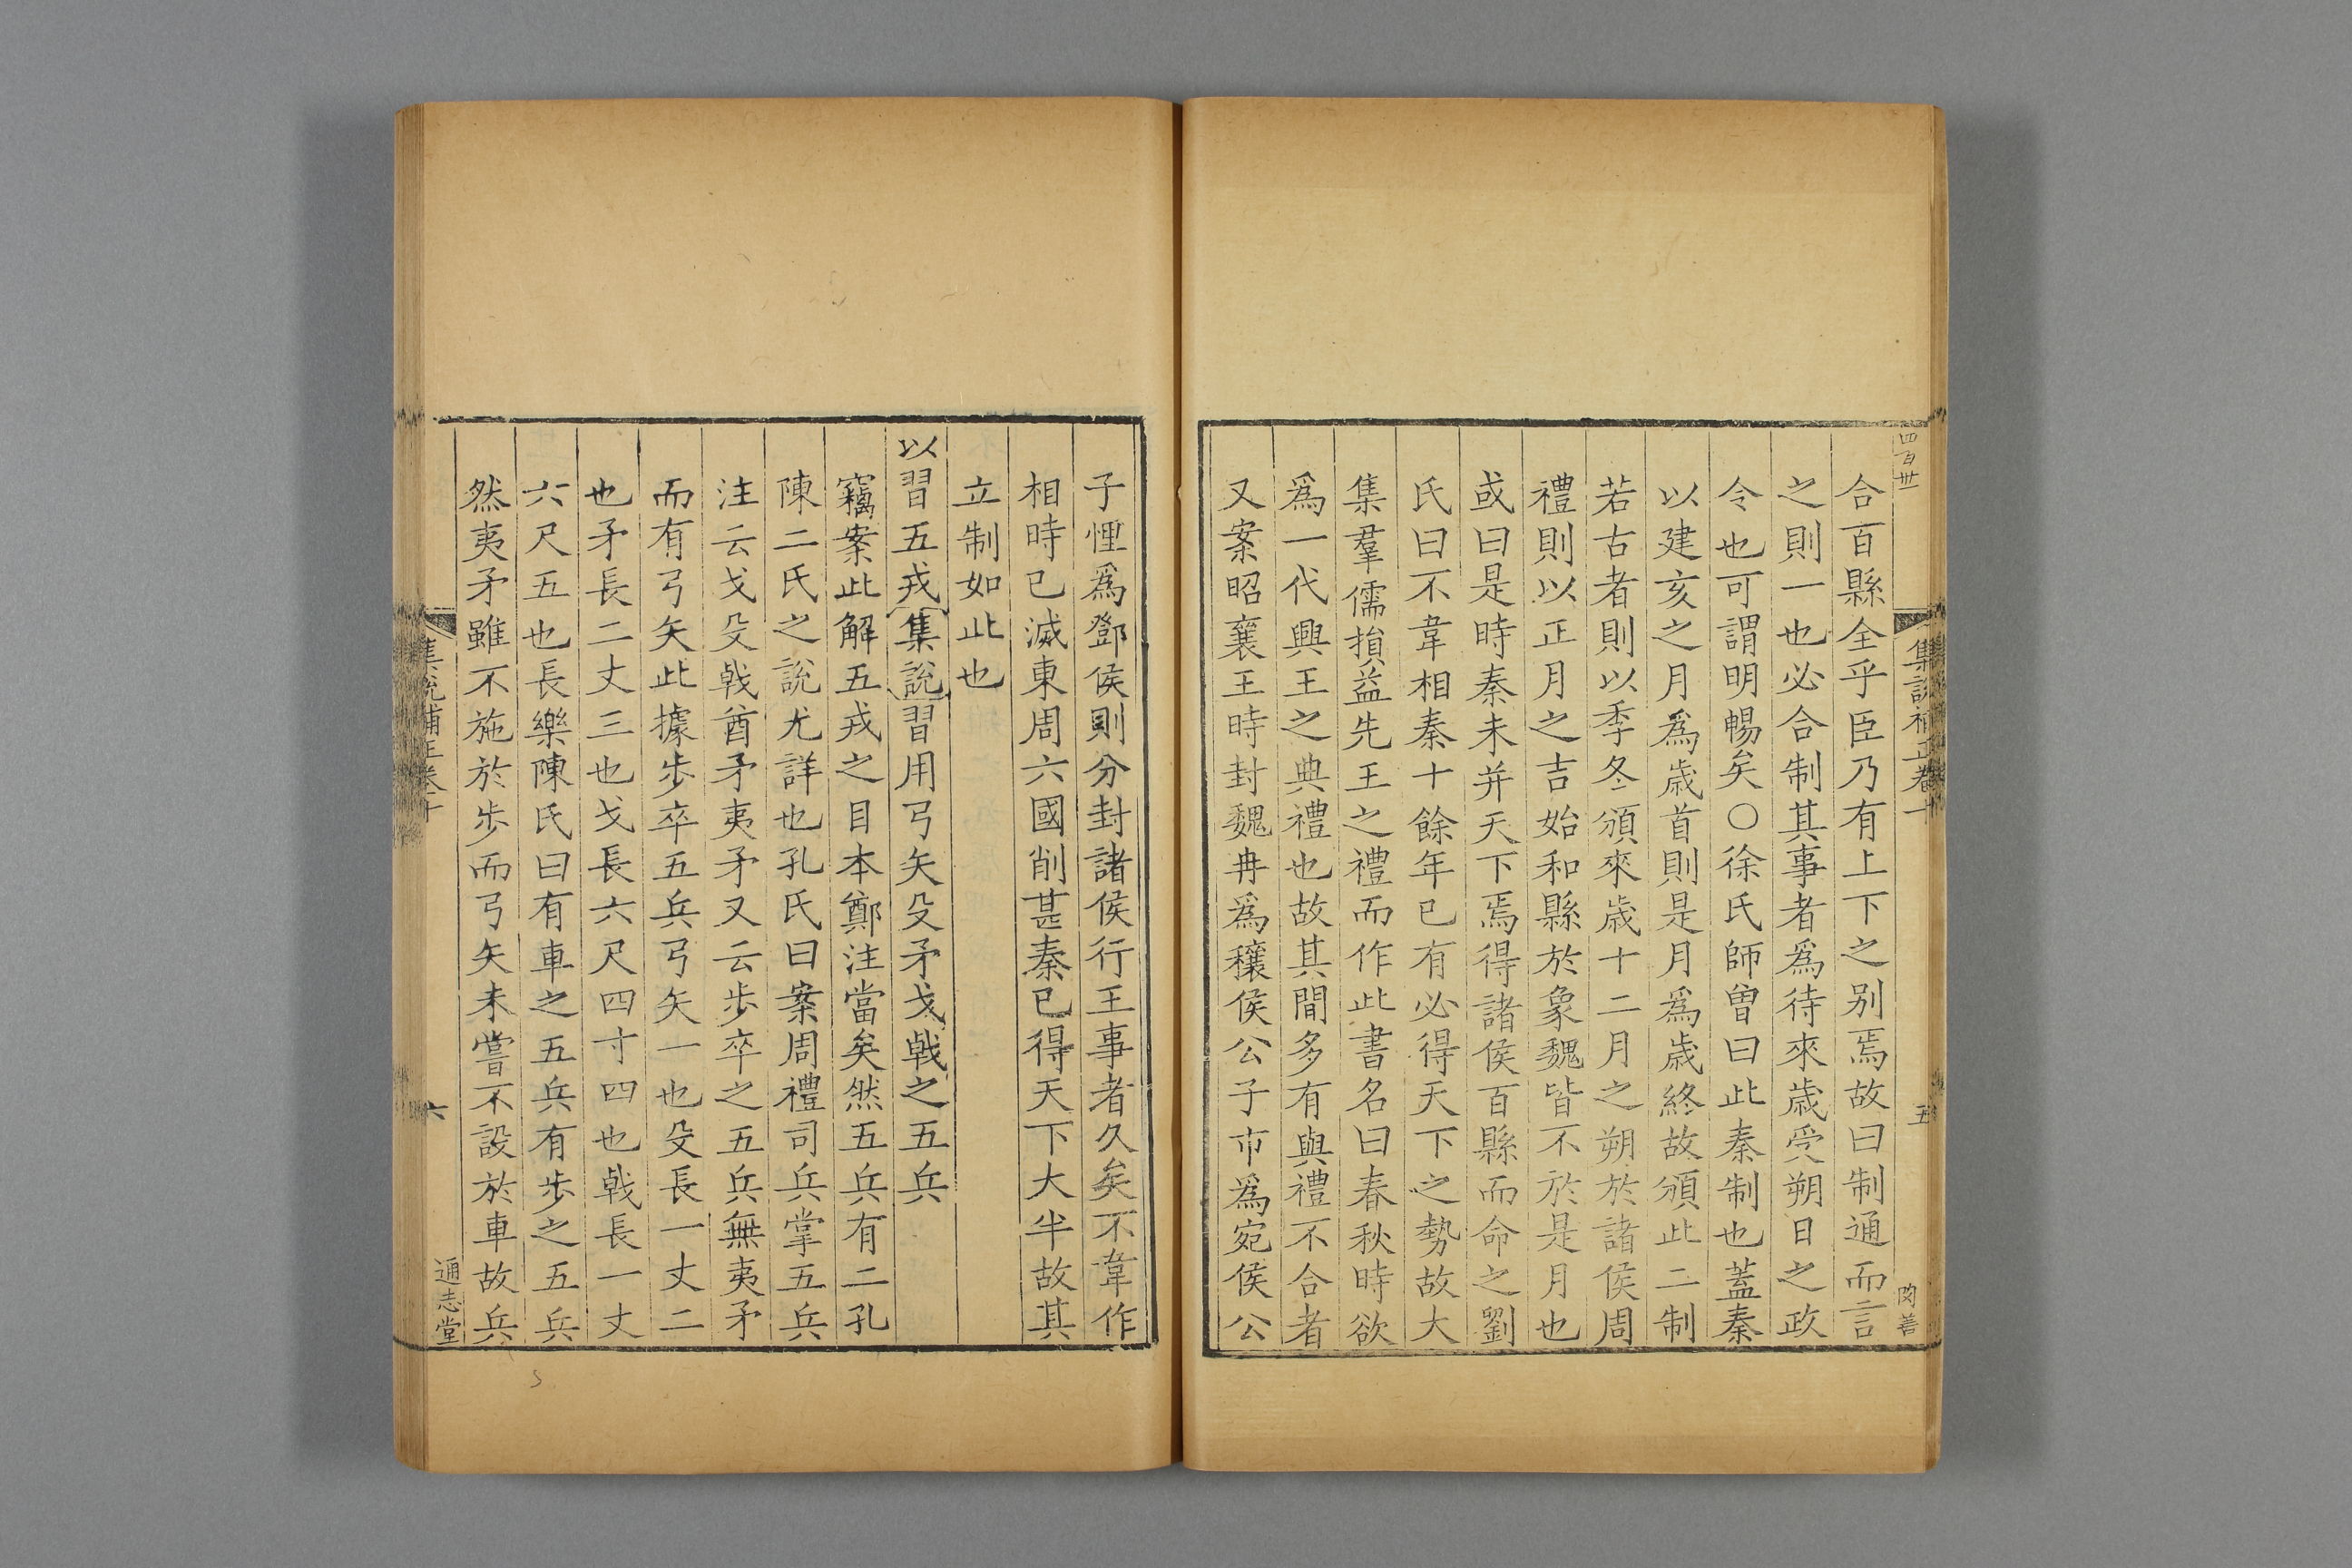 四百卅
集說補正卷十
五
閔善
合百縣全乎臣乃有上下之别焉故曰制通而言
之則一也必合制其事者爲待來歲受朔日之政
令也可謂明暢矣○徐氏師曾曰此秦制也蓋秦
以建亥之月爲歲首則是月爲歲終故頒此二制
若古者則以季冬頒來歲十二月之朔於諸侯周
禮則以正月之吉始和縣於象魏皆不於是月也
或曰是時秦未并天下焉得諸侯百縣而命之劉
氏曰不韋相秦十餘年已有必得天下之勢故大
集羣儒損益先王之禮而作此書名曰春秋時欲
爲一代興王之典禮也故其間多有與禮不合者
又案昭襄王時封魏冉爲穰侯公子市爲宛侯公
子悝爲鄧侯則分封諸侯行王事者久矣不韋作
相時已滅東周六國削甚秦已得天下大半故其
立制如此也
以習五戎集說習用弓矢殳矛戈戟之五兵
竊案此解五戎之目本鄭注當矣然五兵有二孔
陳二氏之說尤詳也孔氏曰案周禮司兵掌五兵
注云戈殳戟酋矛夷矛又云步卒之五兵無夷矛
而有弓矢此據步卒五兵弓矢一也殳長一丈二
也矛長二丈三也戈長六尺四寸四也戟長一丈
六尺五也長樂陳氏曰有車之五兵有步之五兵
然夷矛雖不施於步而弓矢未嘗不設於車故兵
集說補正卷十
六
通志堂